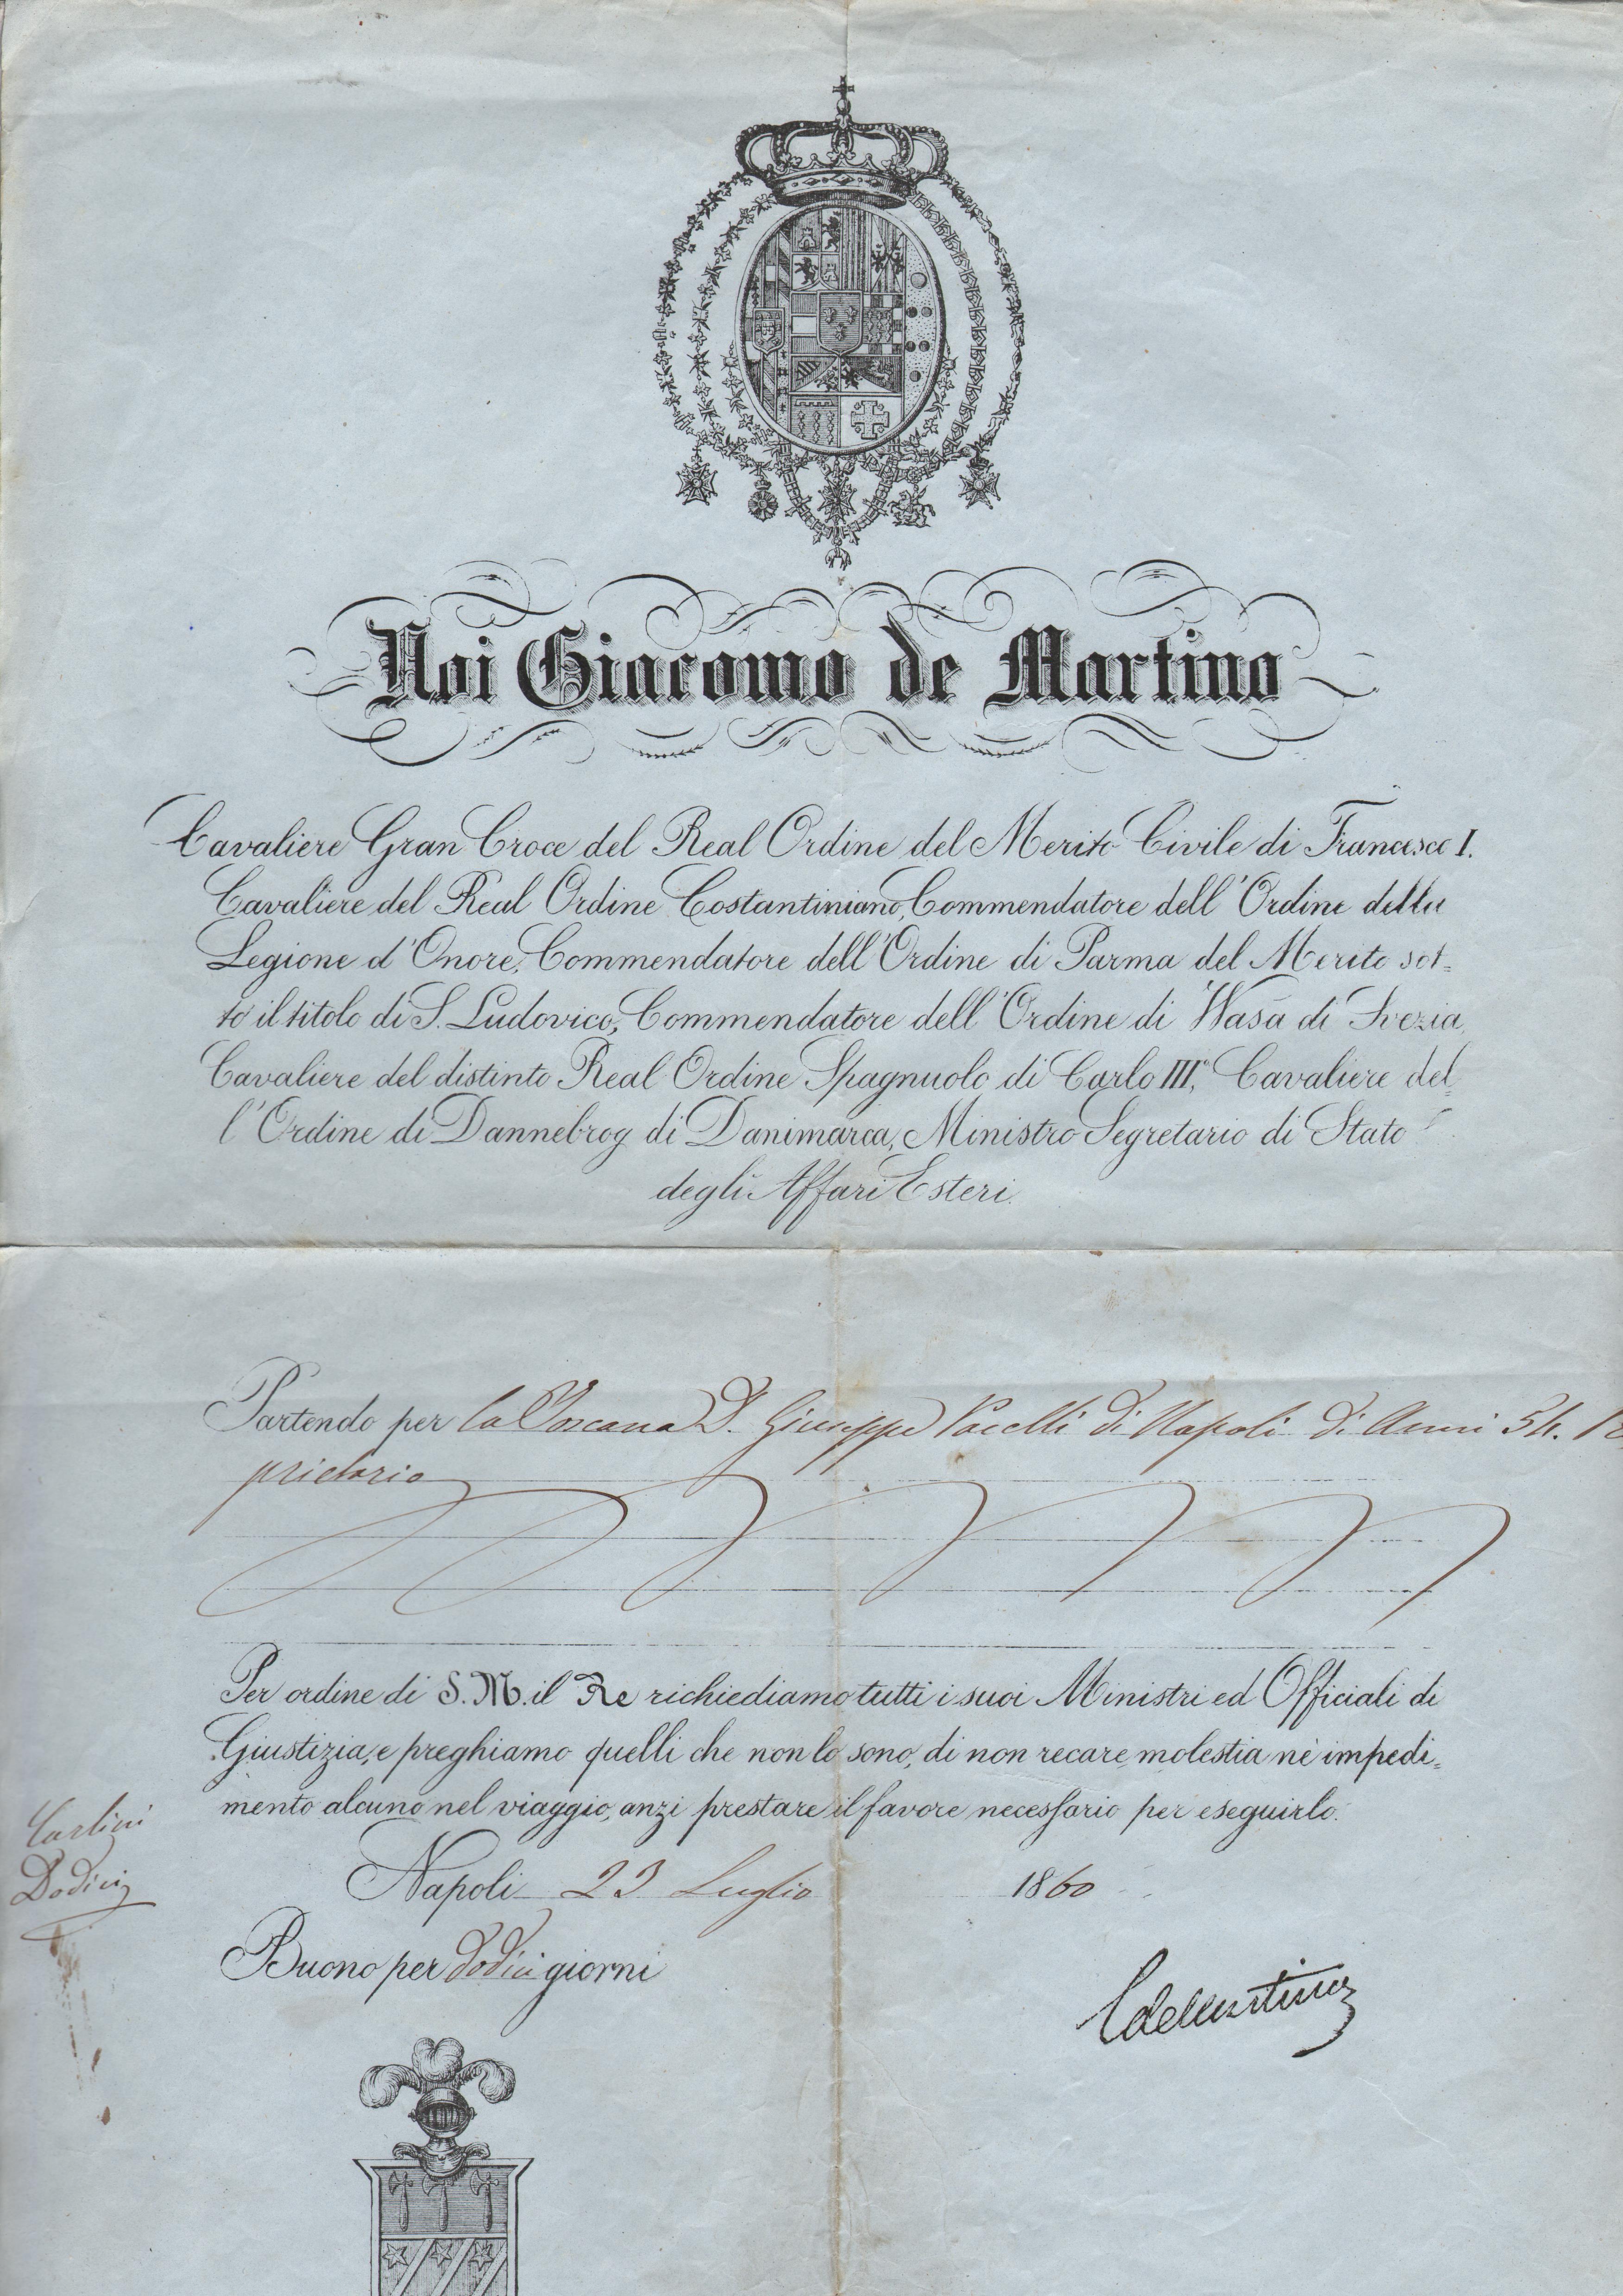 Noi Giacomo de Martino
Cavaliere Gran Croce del Real Ordine del Merito Civile di Francesco I.
Cavaliere del Real Ordine Costantiniano, Commendatore dell' Ordine della
Legione d' Onore, Commendatore dell' Ordine di Parma del Merito sot=
to il titolo di S. Ludovico, Commendatore dell' Ordine di Wasa di Svezia,
Cavaliere del distinto Real Ordine Spagnuolo di Carlo III°, Cavaliere del=
l' Ordine di Dannebrog di Danimarca, Ministro Segretario di Stato
degli Affari Esteri.
Partendo per la Toscana D. Giuseppe di Napoli di Anni 54.
prietario
Per ordine di S. M. il Re richiediamo tutti i suoi Ministri ed Officiali di
Giustizia, e preghiamo quelli che non lo sono, di non recare molestia nè impedi=
mento alcuno nel viaggio, anzi prestare il favore necessario per eseguirlo.
Carlini
Dodici
Napoli 23 Luglio 1860
Buono per dodici giorni